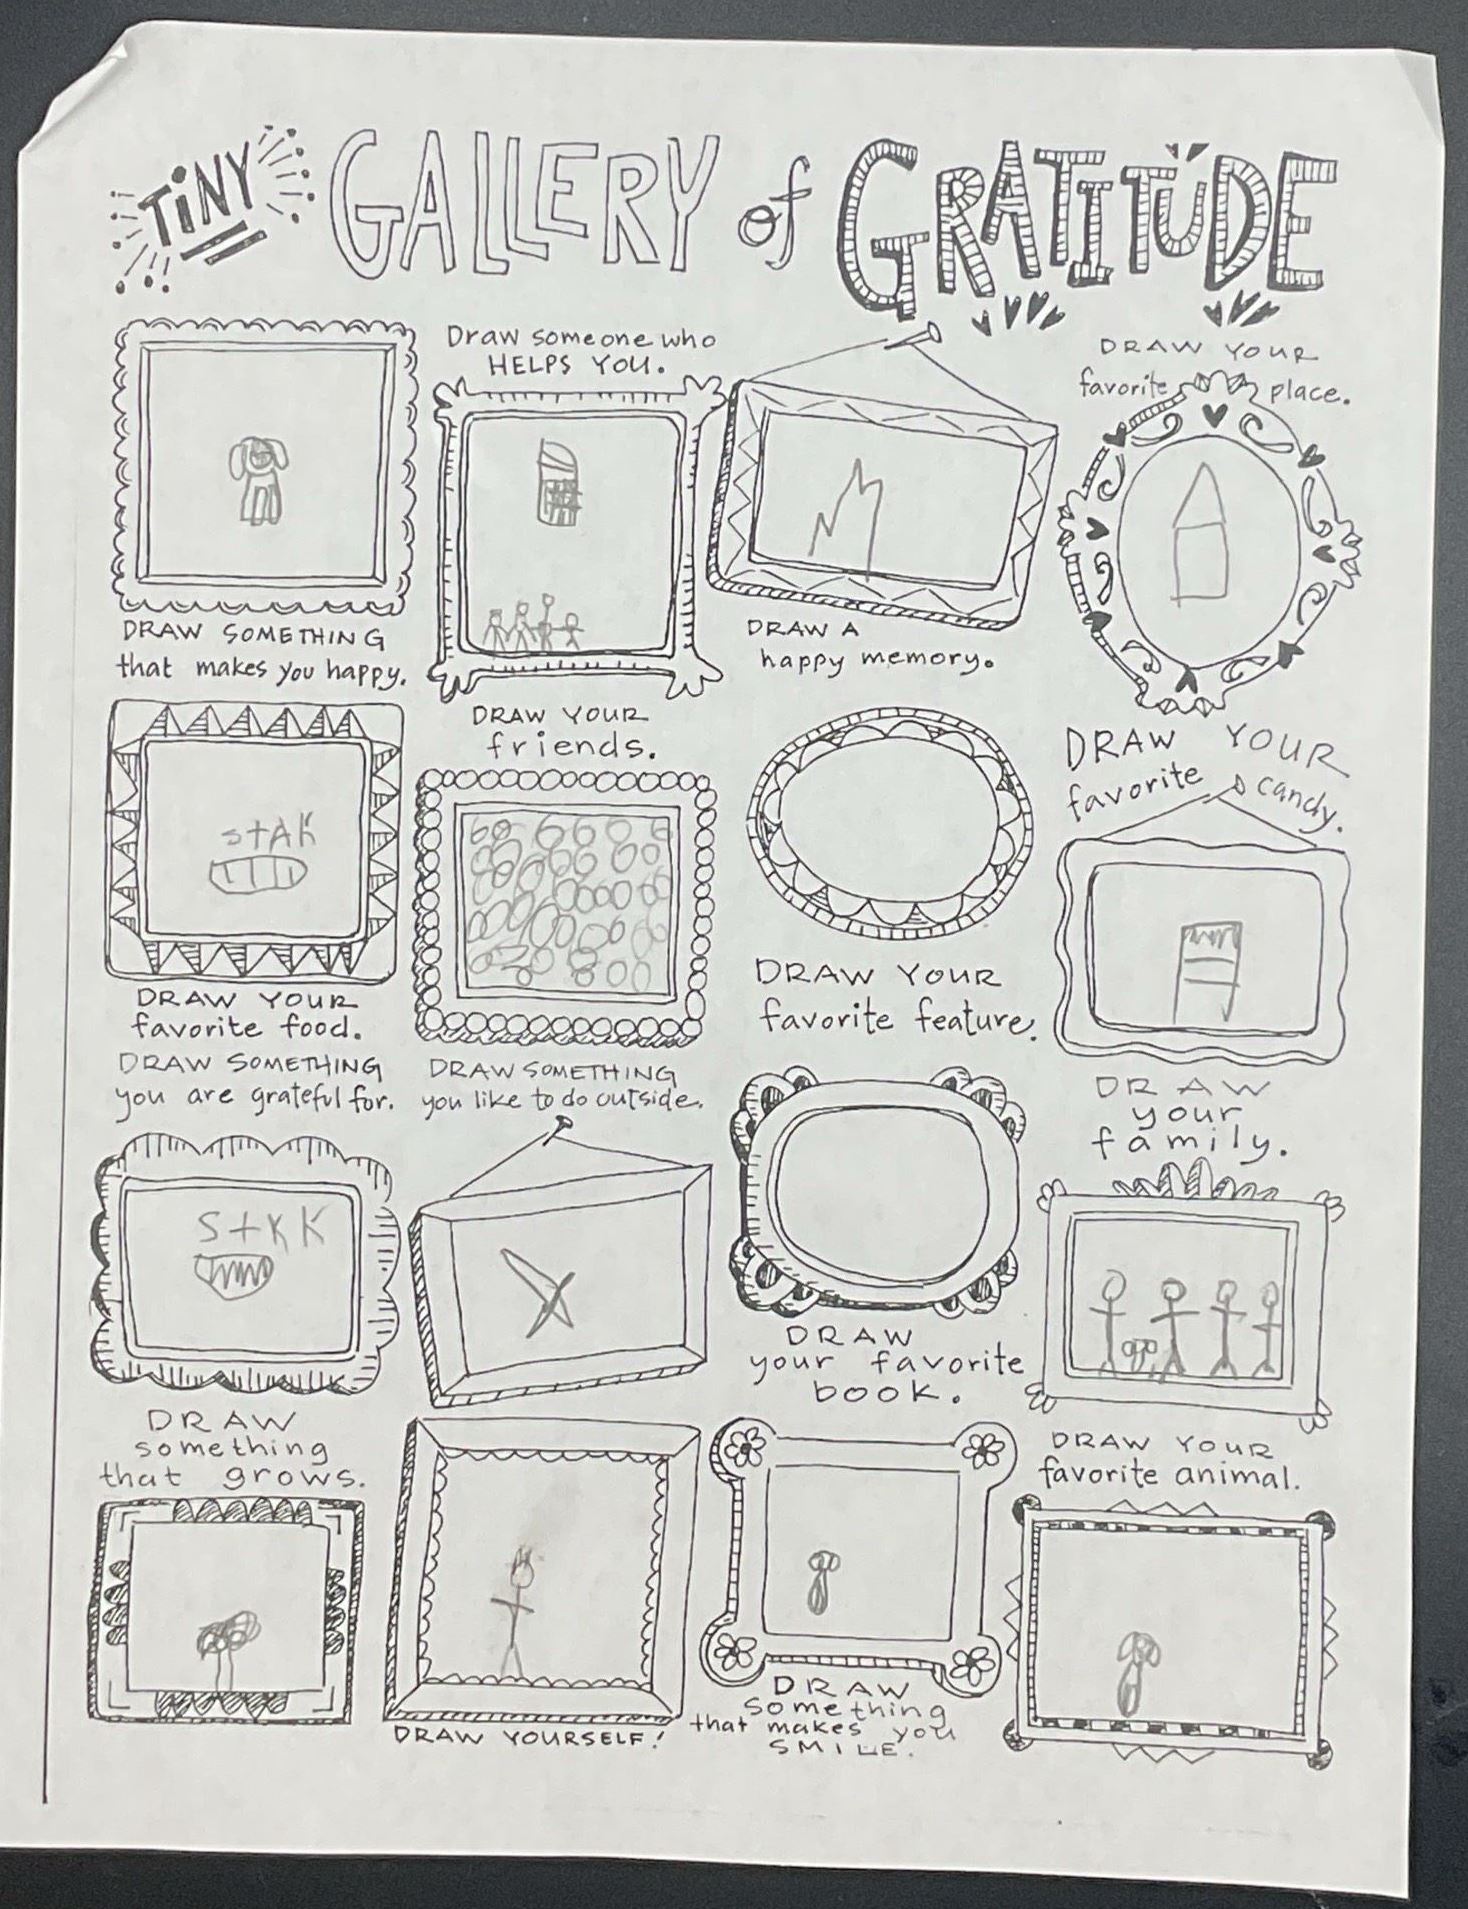 TiNY GALLERY of GRATITUDE
Draw someone who
HELPS YOU.
DRAW YOUR
favorite place.
DRAW SOMETHING
that makes you happy.
DRAW A
happy memory.
DRAW YOUR
friends.
DRAW YOUR
favorite candy.
stAK
DRAW YOUR
favorite food.
DRAW YOUR
favorite feature.
DRAW SOMETHING
you are grateful for.
DRAW SOMETHING
you like to do outside.
DRAW
your
family.
StKK
DRAW
your favorite
book.
DRAW
something
that grows.
DRAW YOUR
favorite animal.
DRAW YOURSELF!
DRAW
something
that makes you
SMILE.